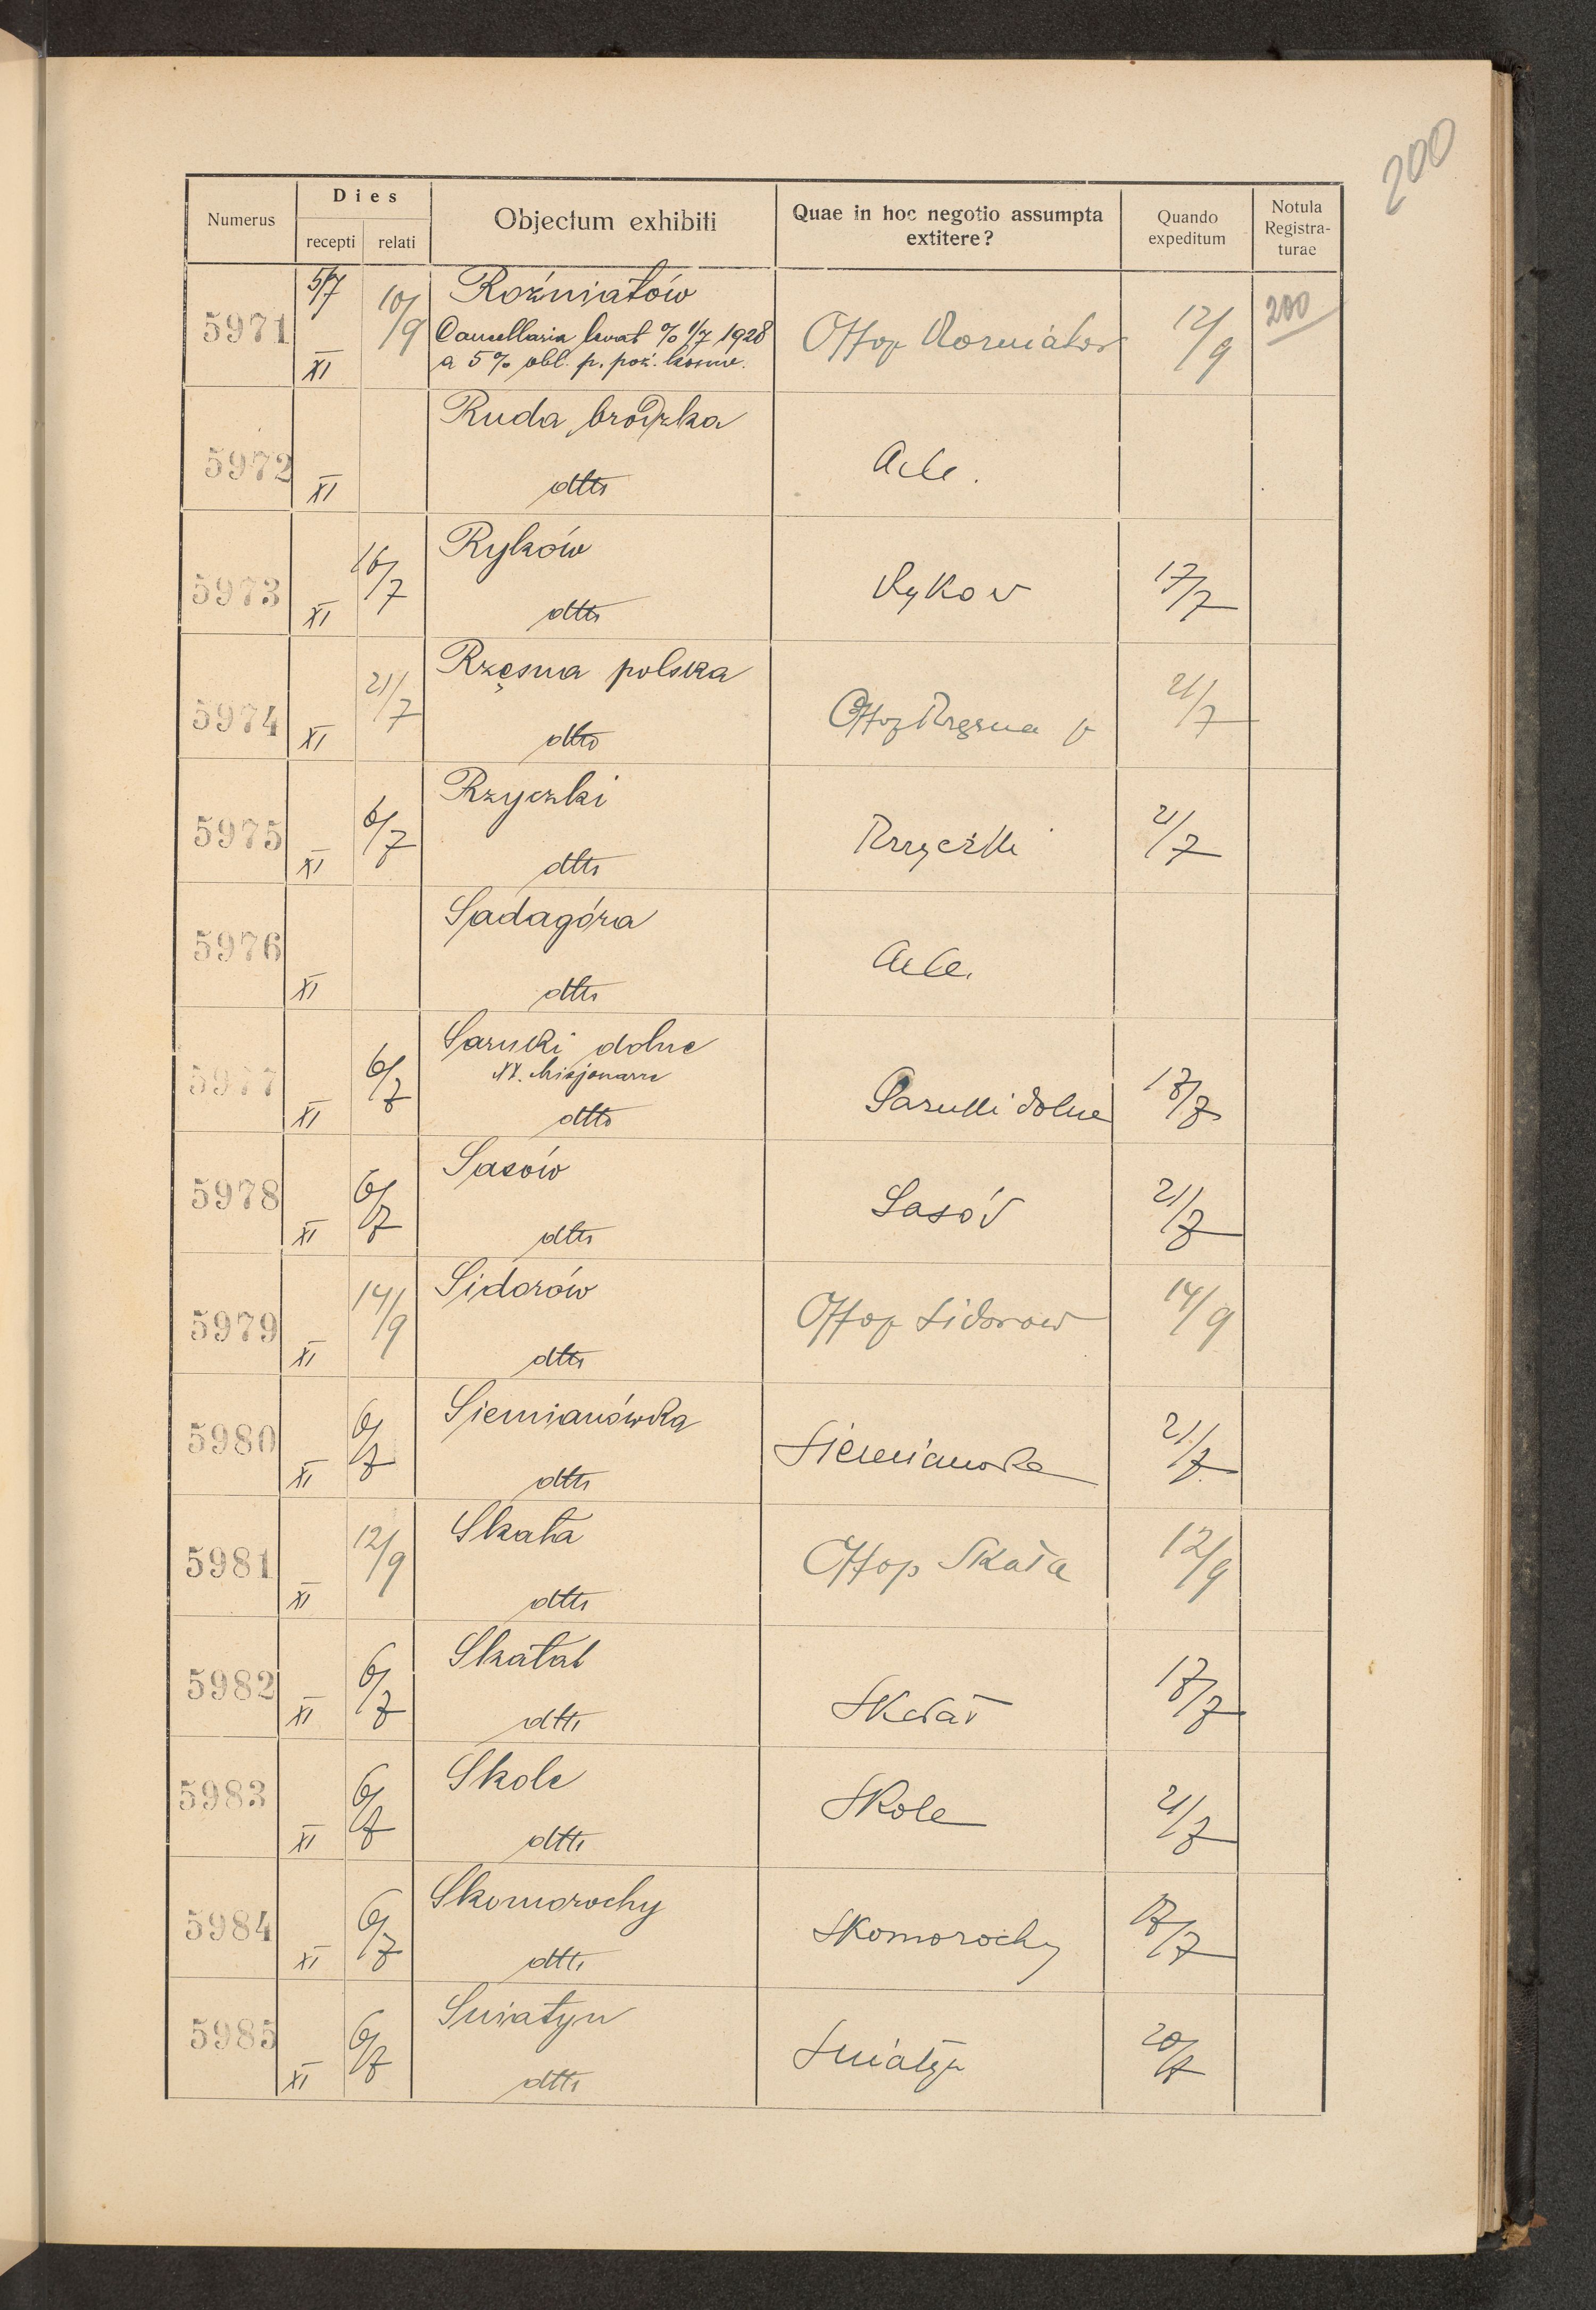 200
Numerus
Dies
recepti relati
Objectum exhibiti
Quae in hoc negotio assumpta
extitere?
Quando
expeditum
Notula
Registra-
turae
5971 5/7 XI 10/9 Rożniatów
Cancellaria levat % 1/7 1928
a 5% obl. p. poż. konw.
Offop Rozniatow 12/9 200
5972 XI Ruda brodzka
dtto
5973 XI 16/7 Ryków
dtto
Rykow 17/7
5974 XI 21/7 Rzęsna polska
dtto
Offop Rzęsna p 21/7
5975 XI 6/7 Rzyczki
dtto
Rzyczki 21/7
5976 XI Sadagóra
dtto
5977 XI 6/7 Sarnki dolne
XX. Misjonarze
dtto
Sarnki dolne 17/7
5978 XI 6/7 Sasów
dtto
Sasów 21/7
5979 XI 14/9 Sidorów
dtto
Offop Sidorow 14/9
5980 XI 6/7 Siemianówka
dtto
Siemianowka 21/7
5981 XI 12/9 Skała
dtto
Offop Skała 12/9
5982 XI 6/7 Skałat
dtto
Skałat 17/7
5983 XI 6/7 Skole
dtto
Skole 21/7
5984 XI 6/7 Skomorochy
dtto
Skomorochy 17/7
5985 XI 6/7 Sniatyn
dtto
Sniatyn 20/7